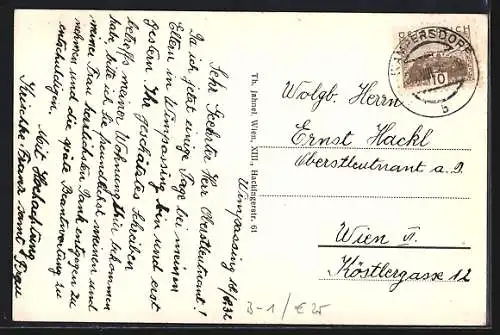 Wimpassing 16/8.32
Sehr Geehrter Herr Oberstleutnant!
Da ich jetzt einige Tage bei meinen
Eltern in Wimpassing bin und erst
gestern Ihr geschätztes Schreiben
betreffs meiner Wohnung hier bekommen
habe, bitte ich Sie freundlichst meinen und
meiner Frau herzlichsten Dank entgegen zu
nehmen und die späte Beantwortung zu
entschuldigen.
Mit Hochachtung
Franz samt Frau
Th. Jahnel, Wien, XIII., Hackingerstr. 61
ÖSTERREICH
10
b
Wolgb. Herrn
Ernst Hackl
Oberstleutnant a. D.
Wien VI.
Köstlergasse 12
B-1/€25